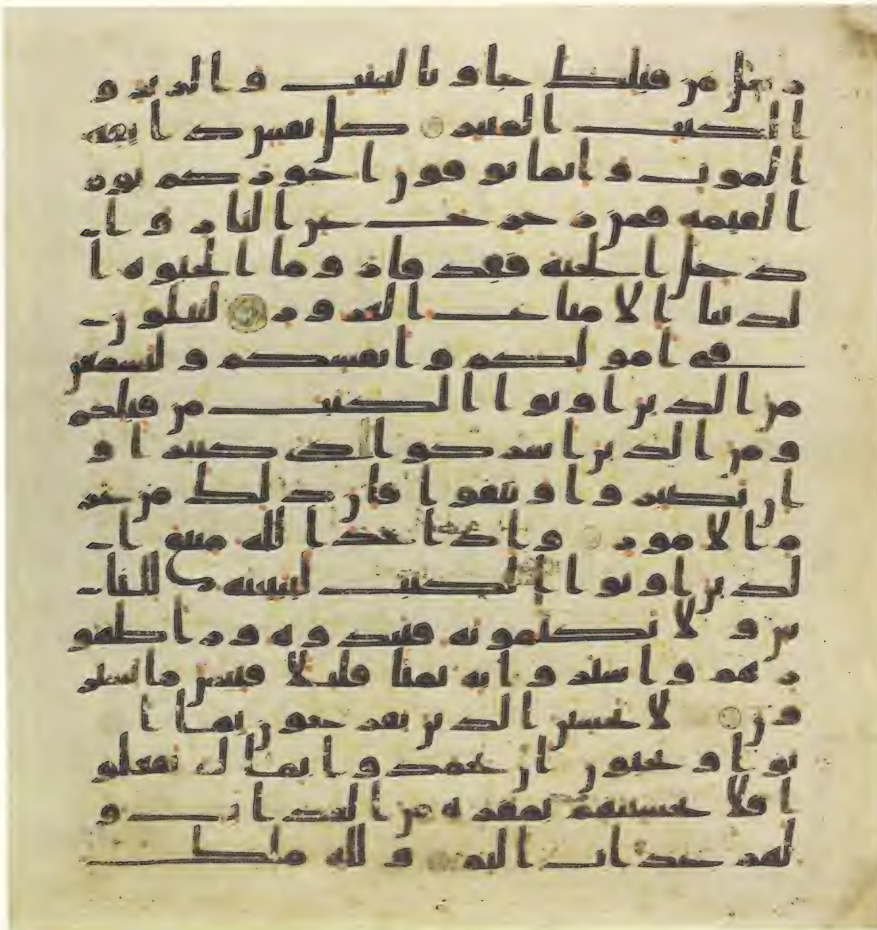 رسل من قبلك جاو بالبينت والزبر و
الكتب المنير كل نفس ذايقه
الموت وانما توفون اجوركم يوم
القيمه فمن زحزح عن النار وا
دخل الجنه فقد فاز وما الحيوه ا
لدنيا الا متاع الغرور لتبلون
في امولكم وانفسكم ولتسمعن
من الذين اوتوا الكتب من قبلكم
ومن الذين اشركوا اذى كثيرا و
ان تصبروا وتتقوا فان ذلك من عز
م الامور واذ اخذ الله ميثق ا
لذين اوتوا الكتب لتبيننه للنا
س ولا تكتمونه فنبذوه ورا ظهو
رهم واشتروا به ثمنا قليلا فبيس ما يشتر
ون لا تحسبن الذين يفرحون بما ا
توا ويحبون ان يحمدوا بما لم يفعلو
ا فلا تحسبنهم بمفازه من العذاب و
لهم عذاب اليم ولله ملك